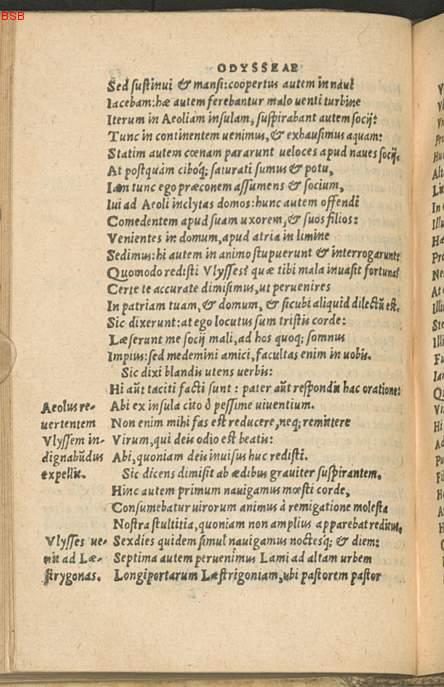 BSB
ODYSSEAE
Sed sustinui & mansi: coopertus autem in naui
Iacebam: hæ autem ferebantur malo uenti turbine
Iterum in Aeoliam insulam, suspirabant autem socij:
Tunc in continentem uenimus, & exhausimus aquam:
Statim autem cœnam pararunt ueloces apud naues socij.
At postquàm ciboq; saturati sumus & potu,
Iam tunc ego præconem assumens & socium,
Iui ad Aeoli inclytas domos: hunc autem offendi
Comedentem apud suam uxorem, & suos filios:
Venientes in domum, apud atria in limine
Sedimus: hi autem in animo stupuerunt & interrogarunt:
Quomodo redisti Vlysses? quæ tibi mala inuasit fortuna?
Certe te accurate dimisimus, ut peruenires
In patriam tuam, & domum, & sicubi aliquid dilectũ est.
Sic dixerunt: at ego locutus sum tristis corde:
Læserunt me socij mali, ad hos quoq; somnus
Impius: sed medemini amici, facultas enim in uobis.
Sic dixi blandis utens uerbis:
Hi aũt taciti facti sunt: pater aũt respondit hac oratione:
Aeolus re- Abi ex insula cito ô pessime uiuentium.
uertentem Non enim mihi fas est reducere, neq; remittere
Vlyssem in- Virum, qui deis odio est beatis:
dignabũdus Abi, quoniam deis inuisus huc redisti.
expellit. Sic dicens dimisit ab ædibus grauiter suspirantem.
Hinc autem primum nauigamus mœsti corde,
Consumebatur uirorum animus à remigatione molesta
Nostra stultitia, quoniam non amplius apparebat reditus.
Vlysses ue- Sexdies quidem simul nauigamus noctesq; & diem:
nit ad Læ- Septima autem peruenimus Lami ad altam urbem
strygonas. Longiportarum Læstrigoniam, ubi pastorem pastor